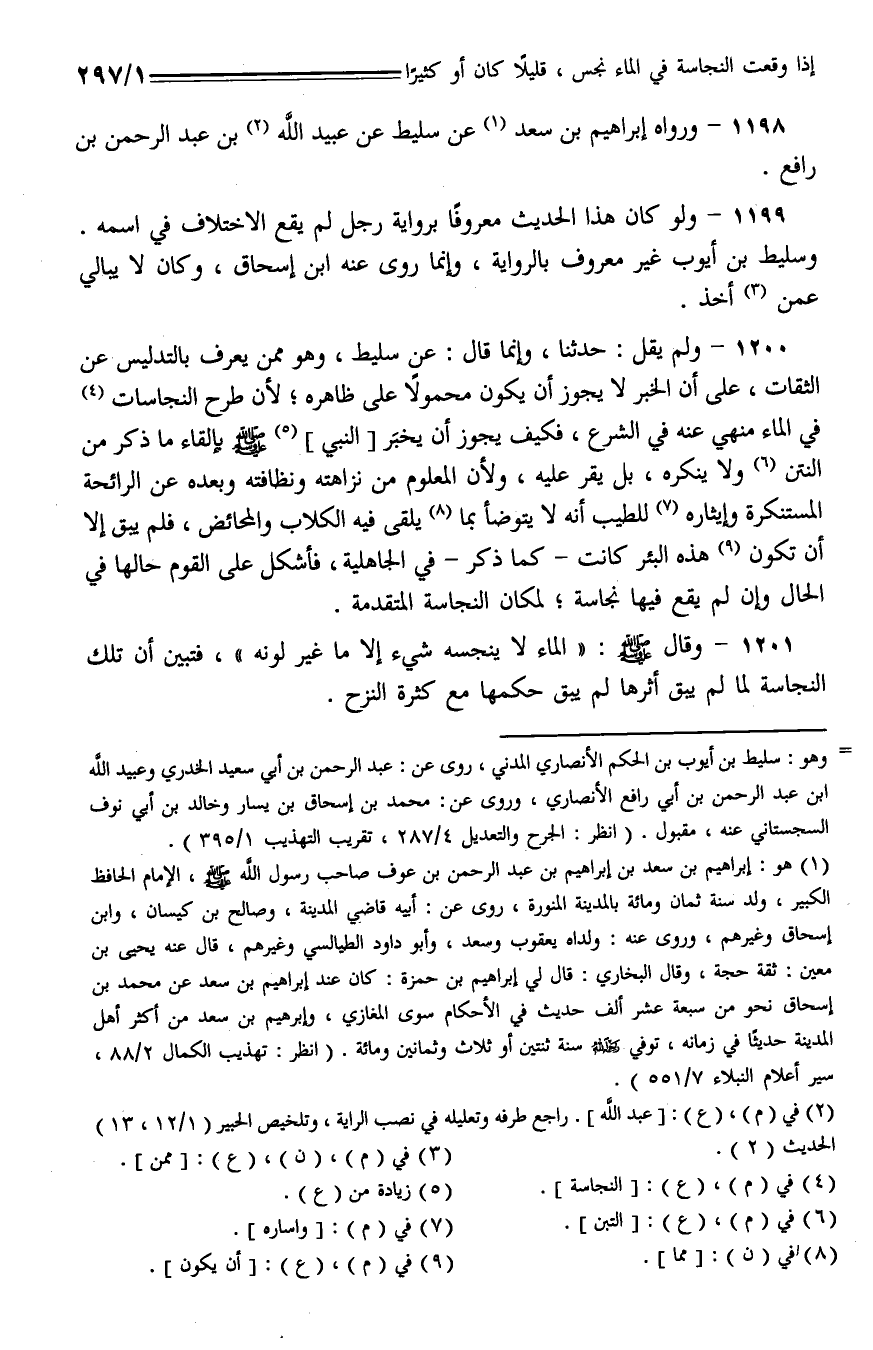 إذا وقعت النجاسة في الماء نجس ، قليلًا كان أو كثيرًا ــــــــ ٢٩٧/١
١١٩٨ - ورواه إبراهيم بن سعد (١) عن سليط عن عبيد اللَّه (٢) بن عبد الرحمن بن
رافع .
١١٩٩ - ولو كان هذا الحديث معروفًا برواية رجل لم يقع الاختلاف في اسمه .
وسليط بن أيوب غير معروف بالرواية ، وإنما روى عنه ابن إسحاق ، وكان لا يبالي
عمن (٣) أخذ .
١٢٠٠ - ولم يقل : حدثنا ، وإنما قال : عن سليط ، وهو ممن يعرف بالتدليس عن
الثقات ، على أن الخبر لا يجوز أن يكون محمولًا على ظاهره ؛ لأن طرح النجاسات (٤)
في الماء منهي عنه في الشرع ، فكيف يجوز أن يخبَر [ النبي ] (٥) ﷺ بإلقاء ما ذكر من
النتن (٦) ولا ينكره ، بل يقر عليه ، ولأن المعلوم من نزاهته ونظافته وبعده عن الرائحة
المستنكرة وإيثاره (٧) للطيب أنه لا يتوضأ بما (٨) يلقى فيه الكلاب والمحائض ، فلم يبق إلا
أن تكون (٩) هذه البئر كانت - كما ذكر - في الجاهلية ، فأشكل على القوم حالها في
الحال وإن لم يقع فيها نجاسة ؛ لمكان النجاسة المتقدمة .
١٢٠١ - وقال ﷺ : « الماء لا ينجسه شيء إلا ما غير لونه » ، فتبين أن تلك
النجاسة لما لم يبق أثرها لم يبق حكمها مع كثرة النزح .
= وهو : سليط بن أيوب بن الحكم الأنصاري المدني ، روى عن : عبد الرحمن بن أبي سعيد الخدري وعبيد اللَّه
ابن عبد الرحمن بن أبي رافع الأنصاري ، وروى عن: محمد بن إسحاق بن يسار وخالد بن أبي نوف
السجستاني عنه ، مقبول . ( انظر : الجرح والتعديل ٢٨٧/٤ ، تقريب التهذيب ٣٩٥/١ ) .
(١) هو : إبراهيم بن سعد بن إبراهيم بن عبد الرحمن بن عوف صاحب رسول اللَّه ﷺ ، الإمام الحافظ
الكبير ، ولد سنة ثمان ومائة بالمدينة المنورة ، روى عن : أبيه قاضي المدينة ، وصالح بن كيسان ، وابن
إسحاق وغيرهم ، وروى عنه : ولداه يعقوب وسعد ، وأبو داود الطيالسي وغيرهم ، قال عنه يحيى بن
معين : ثقة حجة ، وقال البخاري : قال لي إبراهيم بن حمزة : كان عند إبراهيم بن سعد عن محمد بن
إسحاق نحو من سبعة عشر ألف حديث في الأحكام سوى المغازي ، وإبرهيم بن سعد من أكثر أهل
المدينة حديثًا في زمانه ، توفي سنة ثنتين أو ثلاث وثمانين ومائة . ( انظر : تهذيب الكمال ٨٨/٢ ،
سير أعلام النبلاء ٥٥١/٧ ) .
(٢) في ( م ) ، ( ع ) : [ عبد اللَّه ] . راجع طرفه وتعليله في نصب الراية ، وتلخيص الحبير ( ١٢/١ ، ١٣ )
الحديث ( ٢ ) . (٣) في ( م ) ، ( ن ) ، ( ع ) : [ ممن ] .
(٤) في ( م ) ، ( ع ) : [ النجاسة ] . (٥) زيادة من ( ع ) .
(٦) في ( م ) ، ( ع ) : [ التبن ] . (٧) في ( م ) : [ واساره ] .
(٨) في ( ن ) : [ مما ] . (٩) في ( م ) ، ( ع ) : [ أن يكون ] .